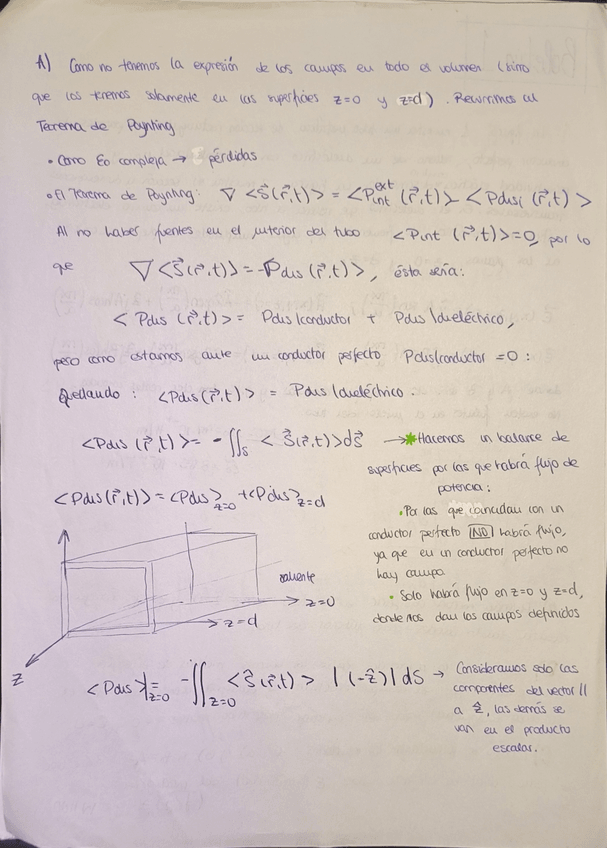 A) Como no tenemos la expresión de los campos en todo el volumen (sino
que los tenemos solamente en las superficies z=0 y z=d). Recurrimos al
Teorema de Poynting
• Como Eo compleja → pérdidas
• El Teorema de Poynting: ∇ <S⃗(r⃗,t)> = <P_int^ext (r⃗,t)> - <Pdis( (r⃗,t) >
Al no haber fuentes en el interior del tubo <Pint (r⃗,t)>=0, por lo
que ∇ <S⃗(r⃗,t)> = -Pdis (r⃗,t)>, ésta sería:
< Pdis (r⃗,t)> = Pdis|conductor + Pdis|dieléctrico,
pero como estamos ante un conductor perfecto Pdis|conductor =0 :
Quedando : <Pdis(r⃗,t)> = Pdis|dieléctrico.
<Pdis (r⃗,t)> = -∬_S < S⃗(r⃗,t)>dS⃗ → * Hacemos un balance de
superficies por las que habrá flujo de
potencia:
<Pdis(r⃗,t)> = <Pdis>_z=0 + <Pdis>_z=d
• Por las que coincidan con un
conductor perfecto NO habrá flujo,
ya que en un conductor perfecto no
hay campo.
• Solo habrá flujo en z=0 y z=d,
donde nos dan los campos definidos
saliente
z=0
z=d
z
<Pdis>|_z=0 = -∬_z=0 <S⃗(r⃗,t) > |(-ẑ)|dS → Consideramos solo las
componentes del vector //
a ẑ, las demás se
van en el producto
escalar.